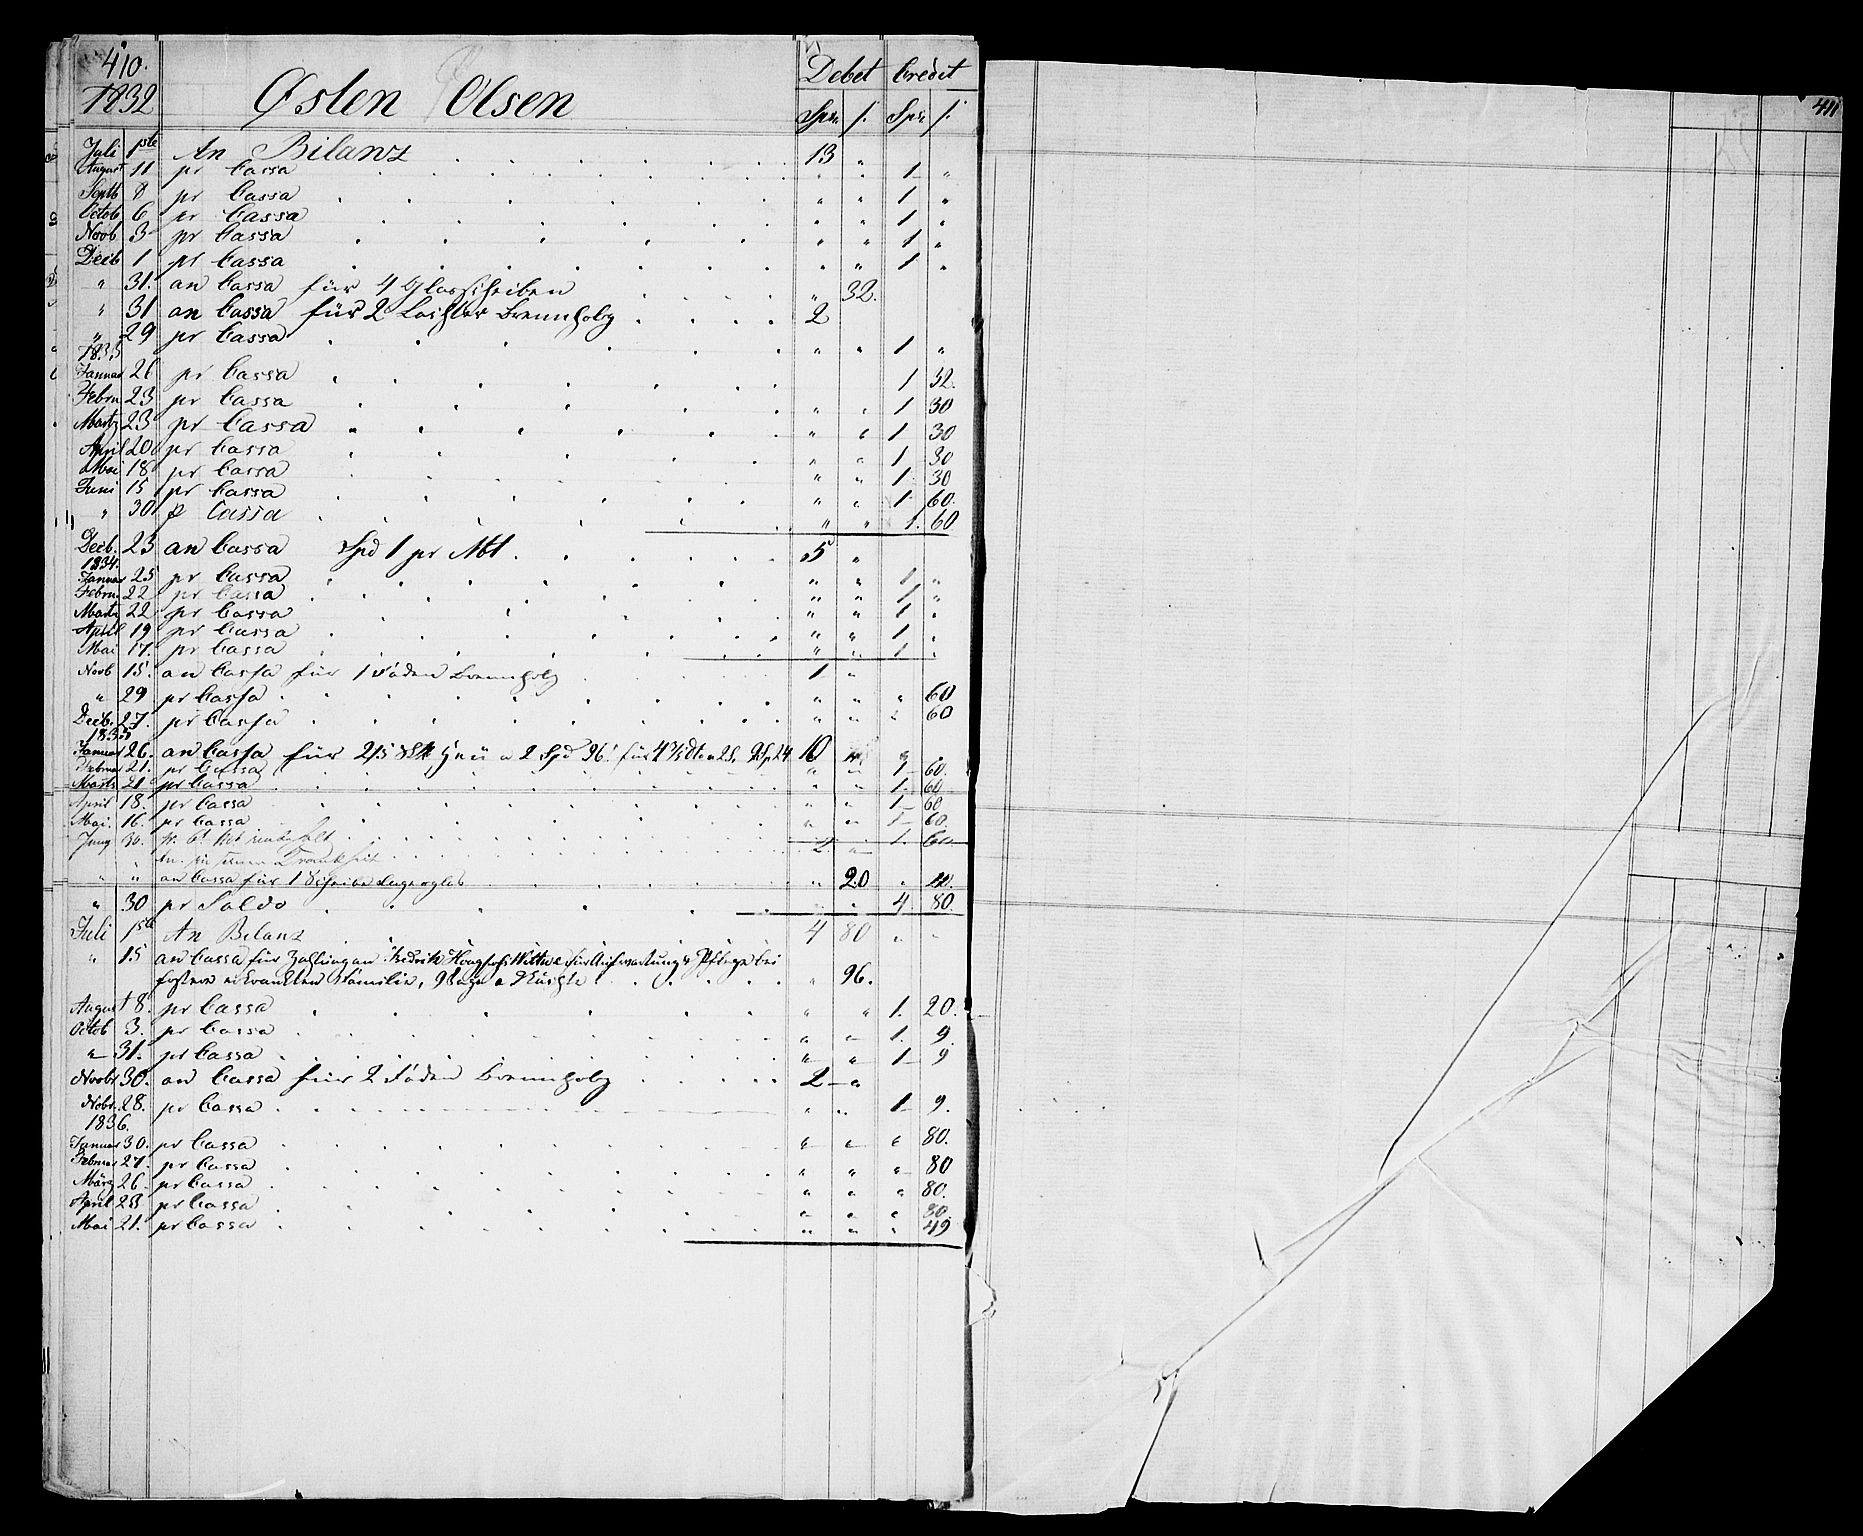 410.
1832 Østen Olsen Debet Credit
Spr. /. Spr. /.
Juli 1ste An Bilanz 13 "
August 11 pr Cassa " " 1 "
Septb 8 pr Cassa " " 1 "
Octob 6 pr Cassa " " 1 "
Novb 3 pr Cassa " " 1 "
Decb 1 pr Cassa " " 1 "
" 31. an Cassa für 4 Glasscheiben " 32.
" 31 an Cassa für 2 Brennholz 2
" 29 pr Cassa " " 1 "
1833
Januar 26 pr Cassa 1 32.
Febru 23 pr Cassa " " 1 30
Martz 23 pr Cassa " " 1 30
April 20 pr Cassa " " 1 30
Mai 18 pr Cassa " " 1 30
Juni 15 pr Cassa " " 1 60.
" 30 p Cassa " " 1. 60
Decb. 23 an Cassa Spd 1 pr Mt. 5 "
1834.
Januar 25 pr Cassa " " 1 "
Febru. 22 pr Cassa " " 1 "
Martz 22 pr Cassa " " 1 "
April 19 pr Cassa " " 1 "
Mai 17. pr Cassa " " 1 "
Novb 15. an Cassa für 1 Faden Brennholz 1 "
" 29 pr Cassa " " " 60
Decb. 27. pr Cassa " " " 60
1835
Januar 26. an Cassa für 2 Heu a 2 Spd 96. für 10
Februar 21. pr Cassa " " 1 60.
Martz 21 pr Cassa " " 1. 60
April 18. pr Cassa " " 1 60
Mai. 16. pr Cassa " " 1 60.
Juny 30. 2. " 1. 60
" " an Cassa für 1 Scheibe " 20 "
" 30 pr Saldo " " 4 80.
Juli 1ste An Bilanz 4 80 " "
" 15 an Cassa für Zahlung an Wittwe für Aufwartung & Pflege bei
erkrankten Familie, 9 Tage a " 96.
August 8. pr Cassa " " 1. 20.
Octob 3. pr Cassa " " 1. 9.
" 31. pr Cassa " " 1 9
Novbr 30. an Cassa für 2 Faden Brennholz 2 "
Nobr. 28. pr Cassa " " 1 9.
1836.
Januar 30. pr Cassa " " " 80.
Februar 27. pr Cassa " " " 80
März 26. pr Cassa " " " 80.
April 23 pr Cassa " " " 80.
Mai 21. pr Cassa " " " 49
411